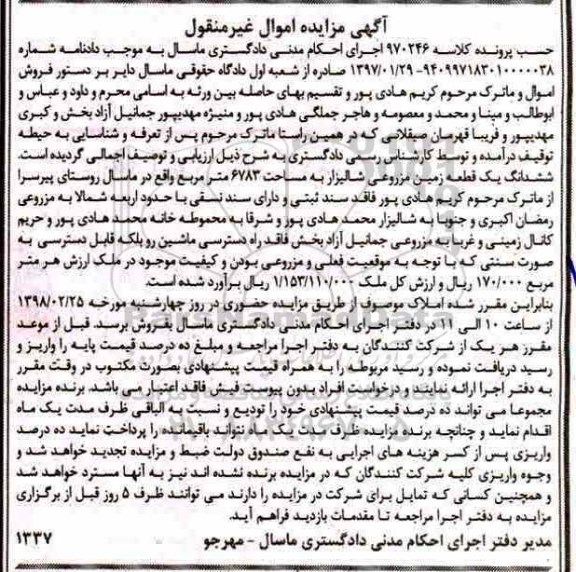 آگهی مزایده اموال غیرمنقول
حسب پرونده کلاسه ۹۷۰۲۴۶ اجرای احکام مدنی دادگستری ماسال به موجب دادنامه شماره
۹۴۰۹۹۷۱۸۳۰۱۰۰۰۰۰۳۸ -۱۳۹۷/۰۱/۲۹ صادره از شعبه اول دادگاه حقوقی ماسال دایر بر دستور فروش
اموال و ماترک مرحوم کریم هادی پور و تقسیم بهای حاصله بین ورثه به اسامی محرم و داود و عباس و
ابوطالب و مینا و محمد و معصومه و هاجر جملگی هادی پور و منیژه مهدیپور جمانیل آزاد بخش و کبری
مهدیپور و فریبا قهرمان صیقلانی که در همین راستا ماترک مرحوم پس از تعرفه و شناسایی به حیطه
توقیف درآمده و توسط کارشناس رسمی دادگستری به شرح ذیل ارزیابی و توصیف اجمالی گردیده است.
ششدانگ یک قطعه زمین مزروعی شالیزار به مساحت ۶۷۸۳ متر مربع واقع در ماسال روستای پیرسرا
از ماترک مرحوم کریم هادی پور فاقد سند ثبتی و دارای سند نسقی با حدود اربعه شمالا به مزروعی
رمضان اکبری و جنوبا به شالیزار محمد هادی پور و شرقا به محموطه خانه محمد هادی پور و حریم
کانال زمینی و غربا به مزروعی جمانیل آزاد بخش فاقد راه دسترسی ماشین رو بلکه قابل دسترسی به
صورت سنتی که با توجه به موقعیت فعلی و مزروعی بودن و کیفیت موجود در ملک ارزش هر متر
مربع ۱۷۰/۰۰۰ ریال و ارزش کل ملک ۱/۱۵۳/۱۱۰/۰۰۰ ریال برآورد شده است.
بنابراین مقرر شده املاک موصوف از طریق مزایده حضوری در روز چهارشنبه مورخه ۱۳۹۸/۰۲/۲۵
از ساعت ۱۰ الی ۱۱ در دفتر اجرای احکام مدنی دادگستری ماسال بفروش برسد. قبل از موعد
مقرر هر یک از شرکت کنندگان به دفتر اجرا مراجعه و مبلغ ده درصد قیمت پایه را واریز و
رسید دریافت نموده و رسید مربوطه را به همراه قیمت پیشنهادی بصورت مکتوب در وقت مقرر
به دفتر اجرا ارائه نمایند و درخواست افراد بدون پیوست فیش فاقد اعتبار می باشد. برنده مزایده
مجموعا می تواند ده درصد قیمت پیشنهادی خود را تودیع و نسبت به الباقی ظرف مدت یک ماه
اقدام نماید و چنانچه برنده مزایده ظرف مدت یک ماه نتواند باقیمانده را پرداخت نماید ده درصد
واریزی پس از کسر هزینه های اجرایی به نفع صندوق دولت ضبط و مزایده تجدید خواهد شد و
وجوه واریزی کلیه شرکت کنندگان که در مزایده برنده نشده اند نیز به آنها مسترد خواهد شد
و همچنین کسانی که تمایل برای شرکت در مزایده را دارند می توانند ظرف ۵ روز قبل از برگزاری
مزایده به دفتر اجرا مراجعه تا مقدمات بازدید فراهم آید.
مدیر دفتر اجرای احکام مدنی دادگستری ماسال - مهرجو ۱۳۳۷